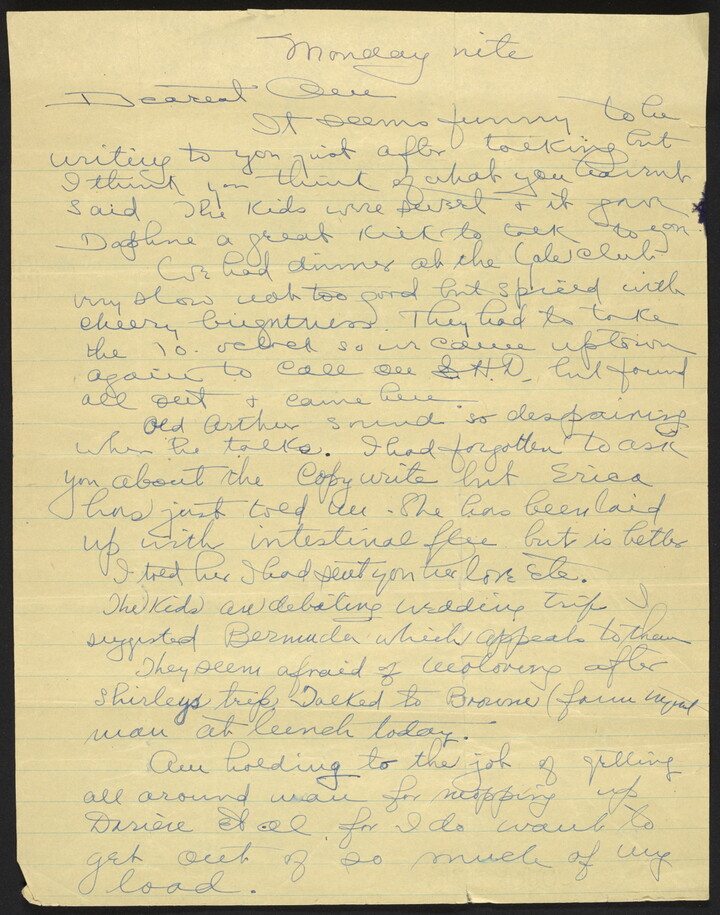 Monday nite
Dearest
It seems funny to be
writing to you just after talking but
I think you think of what you havent
said The Kids were sweet & it gave
Daphne a great kick to talk to you
We had dinner at the Yale Club
very slow not too good but spiced with
cheery brightness. They had to take
the 10. oclock so we came uptown
again to call on H.D. but found
all out & came here
Old Arthur sounds so despairing
when he talks. I had forgotten to ask
you about the Copywrite but Erica
has just told me. She has been laid
up with intestinal flue but is better
I told her I had sent you her love Etc.
The Kids are debating wedding trip I
suggested Bermuda which appeals to them
They seem afraid of motoring after
Shirleys trip. Talked to Browne (farm
man at lunch today.
Am holding to the job of getting
all around man for mopping up
Darien et al for I do want to
get out of so much of my
load.